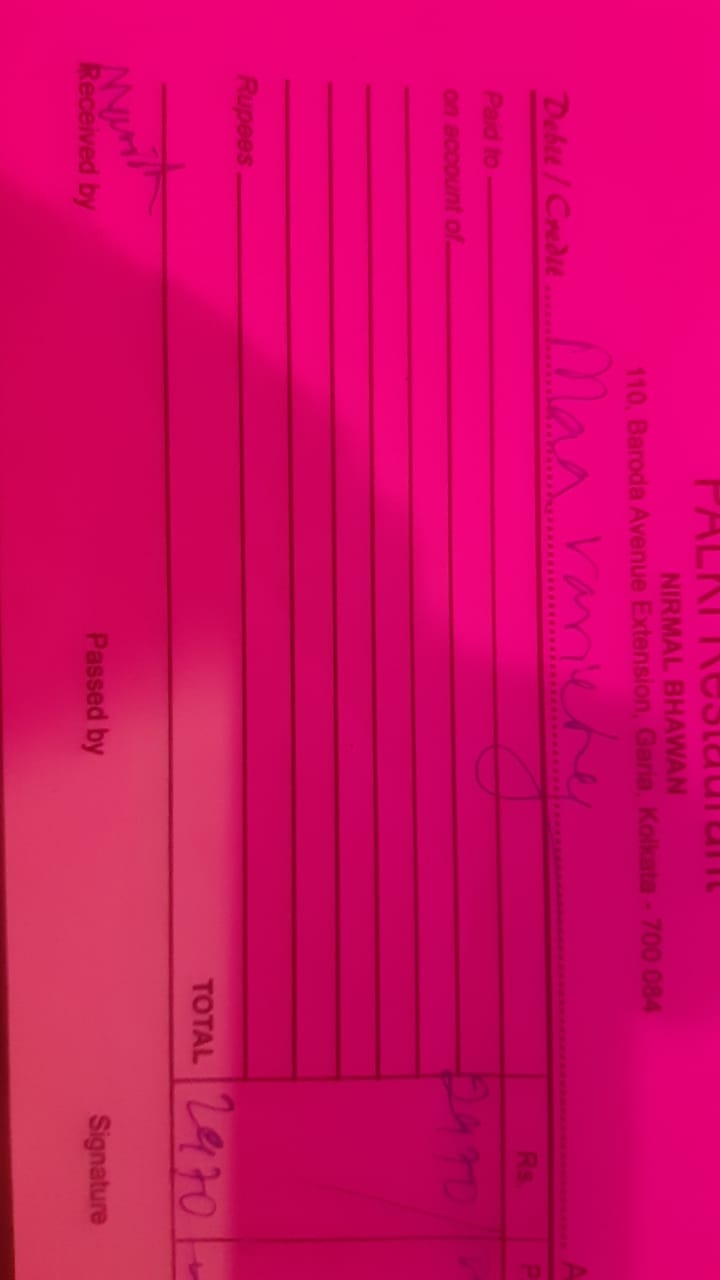 PALKI Restaurant
NIRMAL BHAWAN
110, Baroda Avenue Extension, Garia, Kolkata - 700 084
Debit / Credit Maa variety A
Rs. P
Paid to
on account of 2470/-
Rupees
TOTAL 2470/-
Received by Passed by Signature